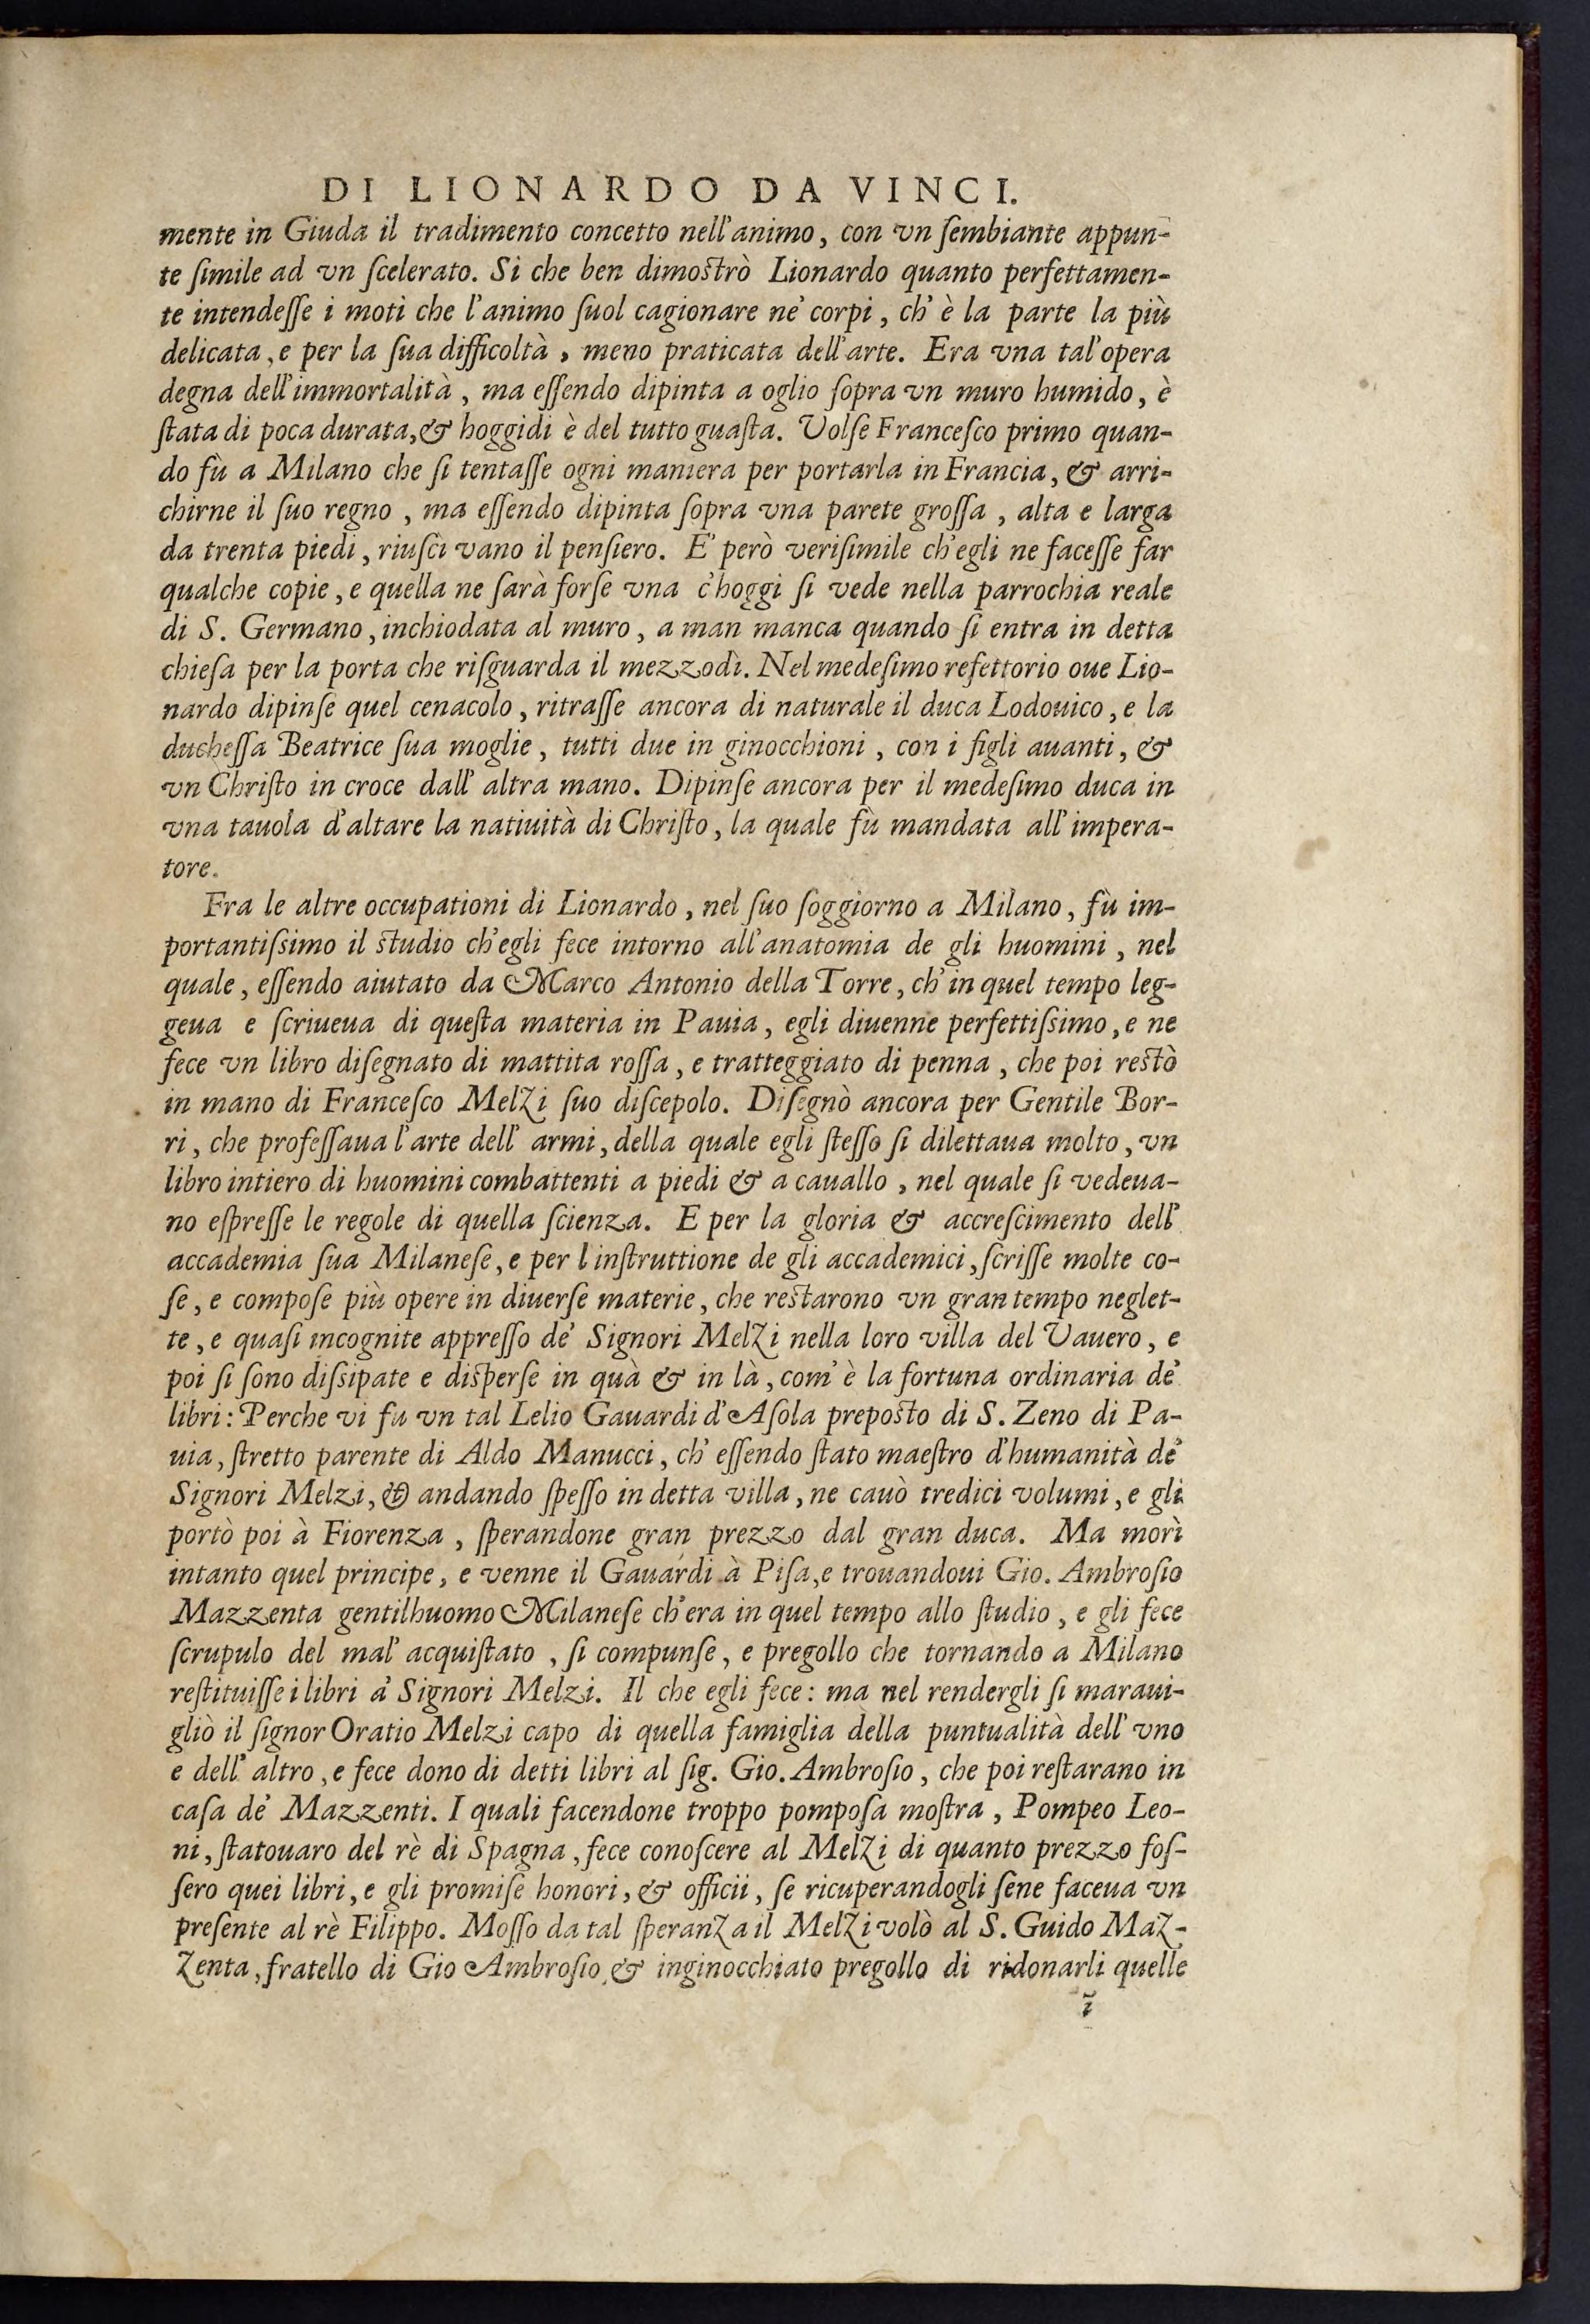 DI LIONARDO DA VINCI.
mente in Giuda il tradimento concetto nell'animo, con vn ſembiante appun-
te ſimile ad vn ſcelerato. Si che ben dimoſtrò Lionardo quanto perfettamen-
te intendeſſe i moti che l'animo ſuol cagionare ne' corpi, ch' è la parte la più
delicata, e per la ſua difficoltà, meno praticata dell'arte. Era vna tal'opera
degna dell'immortalità, ma eſſendo dipinta a oglio ſopra vn muro humido, è
ſtata di poca durata, & hoggidi è del tutto guaſta. Volſe Franceſco primo quan-
do fù a Milano che ſi tentaſſe ogni maniera per portarla in Francia, & arri-
chirne il ſuo regno, ma eſſendo dipinta ſopra vna parete groſſa, alta e larga
da trenta piedi, riuſcì vano il penſiero. E' però veriſimile ch'egli ne faceſſe far
qualche copie, e quella ne ſarà forſe vna c'hoggi ſi vede nella parrochia reale
di S. Germano, inchiodata al muro, a man manca quando ſi entra in detta
chieſa per la porta che riſguarda il mezzodì. Nel medeſimo refettorio oue Lio-
nardo dipinſe quel cenacolo, ritraſſe ancora di naturale il duca Lodouico, e la
ducheſſa Beatrice ſua moglie, tutti due in ginocchioni, con i figli auanti, &
vn Chriſto in croce dall' altra mano. Dipinſe ancora per il medeſimo duca in
vna tauola d'altare la natiuità di Chriſto, la quale fù mandata all'impera-
tore.
Fra le altre occupationi di Lionardo, nel ſuo ſoggiorno a Milano, fù im-
portantiſsimo il ſtudio ch'egli fece intorno all'anatomia de gli huomini, nel
quale, eſſendo aiutato da Marco Antonio della Torre, ch' in quel tempo leg-
geua e ſcriueua di queſta materia in Pauia, egli diuenne perfettiſsimo, e ne
fece vn libro diſegnato di mattita roſſa, e tratteggiato di penna, che poi reſtò
in mano di Franceſco Melzi ſuo diſcepolo. Diſegnò ancora per Gentile Bor-
ri, che profeſſaua l'arte dell' armi, della quale egli ſteſſo ſi dilettaua molto, vn
libro intiero di huomini combattenti a piedi & a cauallo, nel quale ſi vedeua-
no eſpreſſe le regole di quella ſcienza. E per la gloria & accreſcimento dell'
accademia ſua Milaneſe, e per l inſtruttione de gli accademici, ſcriſſe molte co-
ſe, e compoſe più opere in diuerſe materie, che reſtarono vn gran tempo neglet-
te, e quaſi incognite appreſſo de' Signori Melzi nella loro villa del Vauero, e
poi ſi ſono diſsipate e diſperſe in quà & in là, com' è la fortuna ordinaria de'
libri: Perche vi fu vn tal Lelio Gauardi d'Aſola prepoſto di S. Zeno di Pa-
uia, ſtretto parente di Aldo Manucci, ch' eſſendo ſtato maeſtro d'humanità de'
Signori Melzi, & andando ſpeſſo in detta villa, ne cauò tredici volumi, e gli
portò poi à Fiorenza, ſperandone gran prezzo dal gran duca. Ma morì
intanto quel principe, e venne il Gauardi à Piſa, e trouandoui Gio. Ambroſio
Mazzenta gentilhuomo Milaneſe ch'era in quel tempo allo ſtudio, e gli fece
ſcrupulo del mal' acquiſtato, ſi compunſe, e pregollo che tornando a Milano
reſtituiſſe i libri a' Signori Melzi. Il che egli fece: ma nel rendergli ſi maraui-
gliò il ſignor Oratio Melzi capo di quella famiglia della puntualità dell' vno
e dell' altro, e fece dono di detti libri al ſig. Gio. Ambroſio, che poi reſtarano in
caſa de' Mazzenti. I quali facendone troppo pompoſa moſtra, Pompeo Leo-
ni, ſtatouaro del rè di Spagna, fece conoſcere al Melzi di quanto prezzo foſ-
ſero quei libri, e gli promiſe honori, & officii, ſe ricuperandogli ſene faceua vn
preſente al rè Filippo. Moſſo da tal ſperanza il Melzi volò al S. Guido Maz-
zenta, fratello di Gio Ambroſio, & inginocchiato pregollo di ridonarli quelle
ĩ